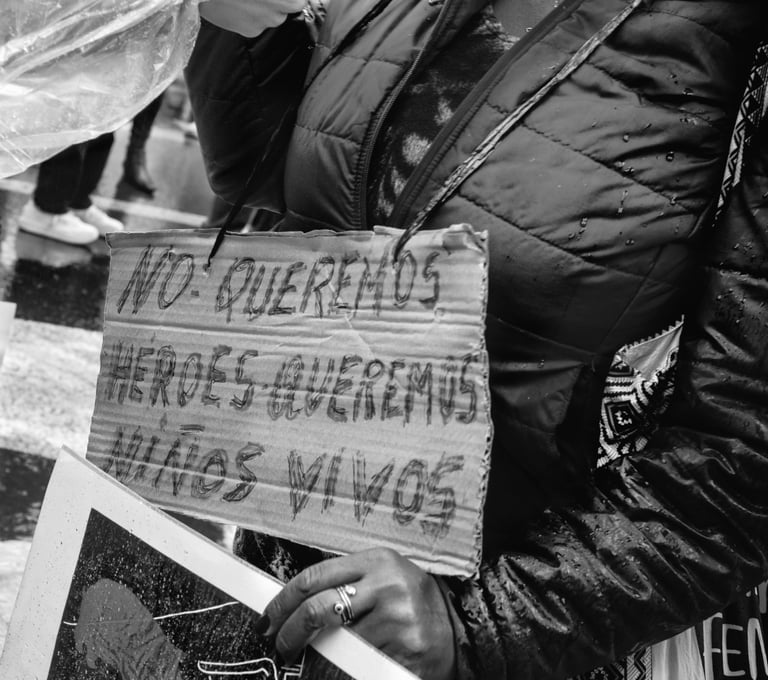 NO QUEREMOS
HEROES QUEREMOS
NIÑOS VIVOS
FEN